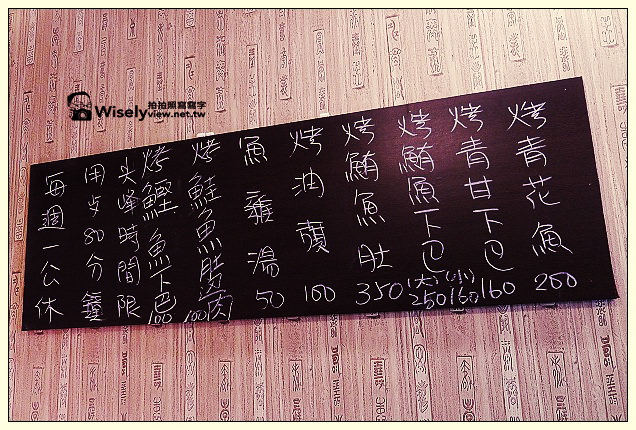 拍拍照寫寫字
Wiselyview.net.tw
烤青花魚 200
烤青甘下巴 160
烤鮪魚下巴 (大)250 (小)160
烤鮪魚肚 350
烤油魚 100
魚雜湯 50
烤鮭魚肚肉 100
烤鰹魚下巴 100
尖峰時間限
用歺80分鐘
每週一公休